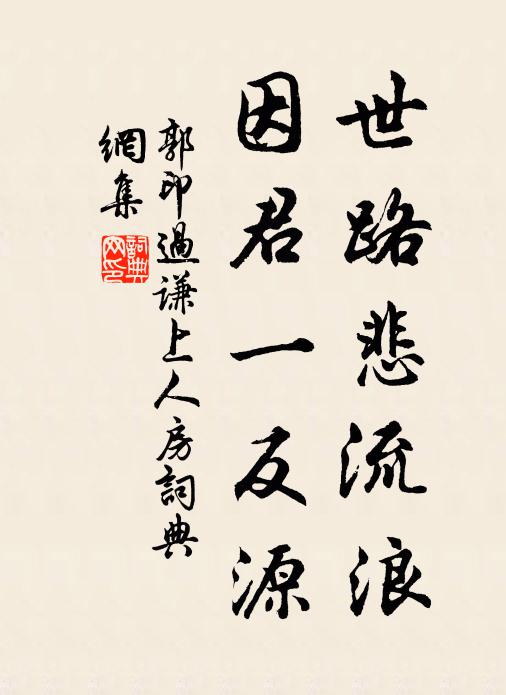 世路悲流浪
因君一反源
郭印過謙上人房詞典
網集
詞典
网印